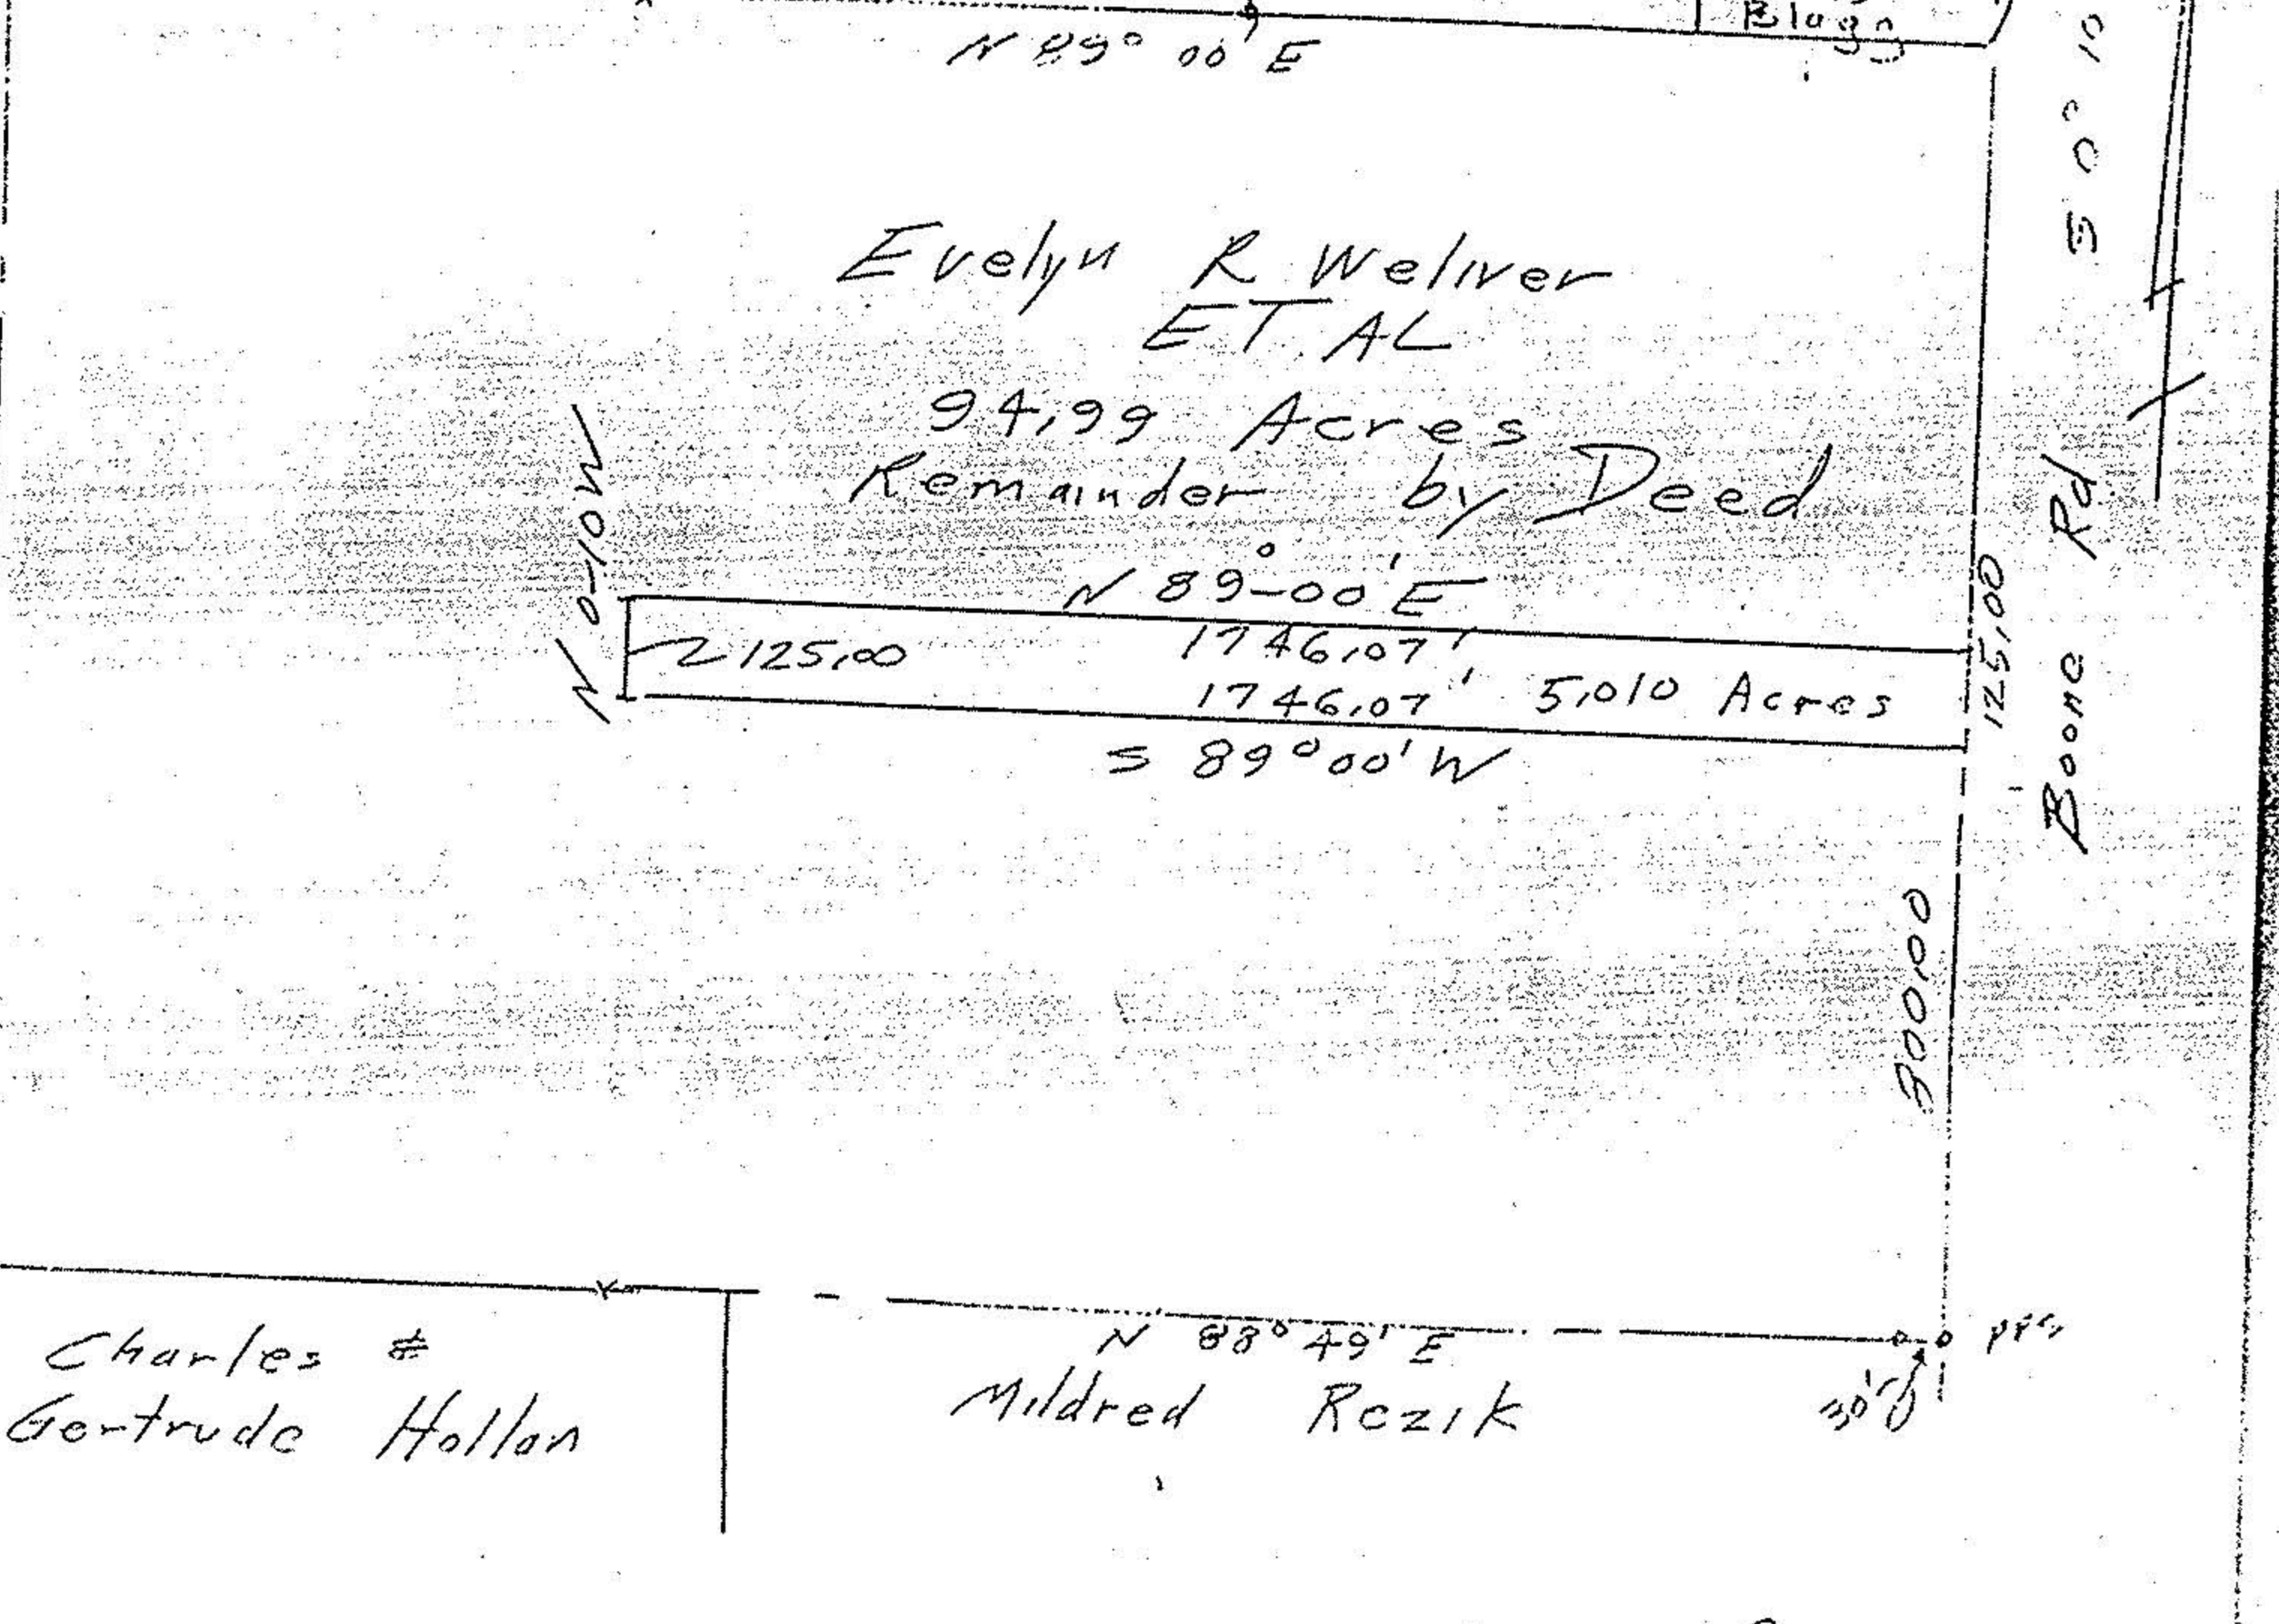 Bldg
N 89° 00' E
S 0° 10
Evelyn R Weliver
ET AL
94.99 Acres
Remainder by Deed
N 0-10W
N 89°-00' E
125.00
1746.07'
1746.07' 5.010 Acres
125.00
S 89° 00' W
Boone Rd
800.00
N 88° 49' E
Charles &
Gertrude Hollan
Mildred Rezik
30'